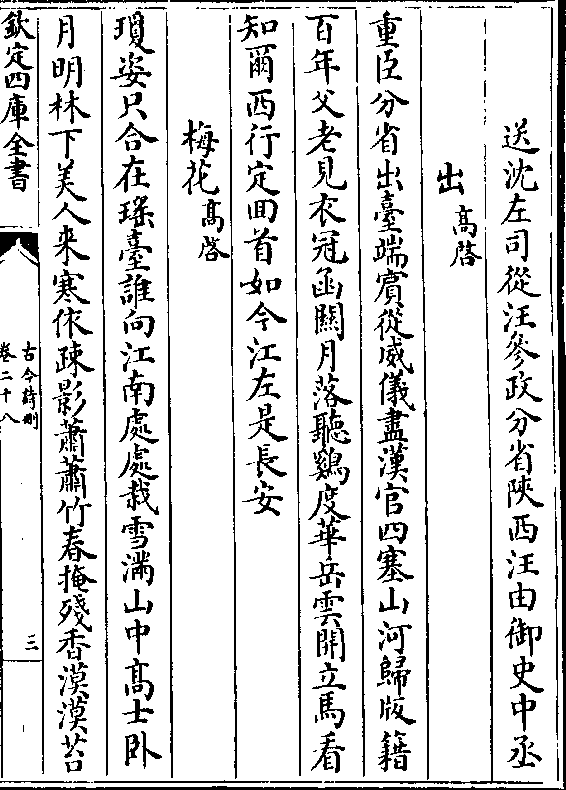 送沈左司從汪參政分省陜西汪由御史中丞
出 髙啓
重臣分省出臺端賔從威儀盡漢官四塞山河歸版籍
百年父老見衣冠函闗月落聽鷄度華岳雲開立馬看
知爾西行定囬首如今江左是長安
梅花 髙啓
瓊姿只合在瑶臺誰向江南處處栽雪滿山中髙士卧
月明林下美人来寒依疎影蕭蕭竹春掩殘香漠漠苔
欽定四庫全書
古今詩刪
卷二十八
三